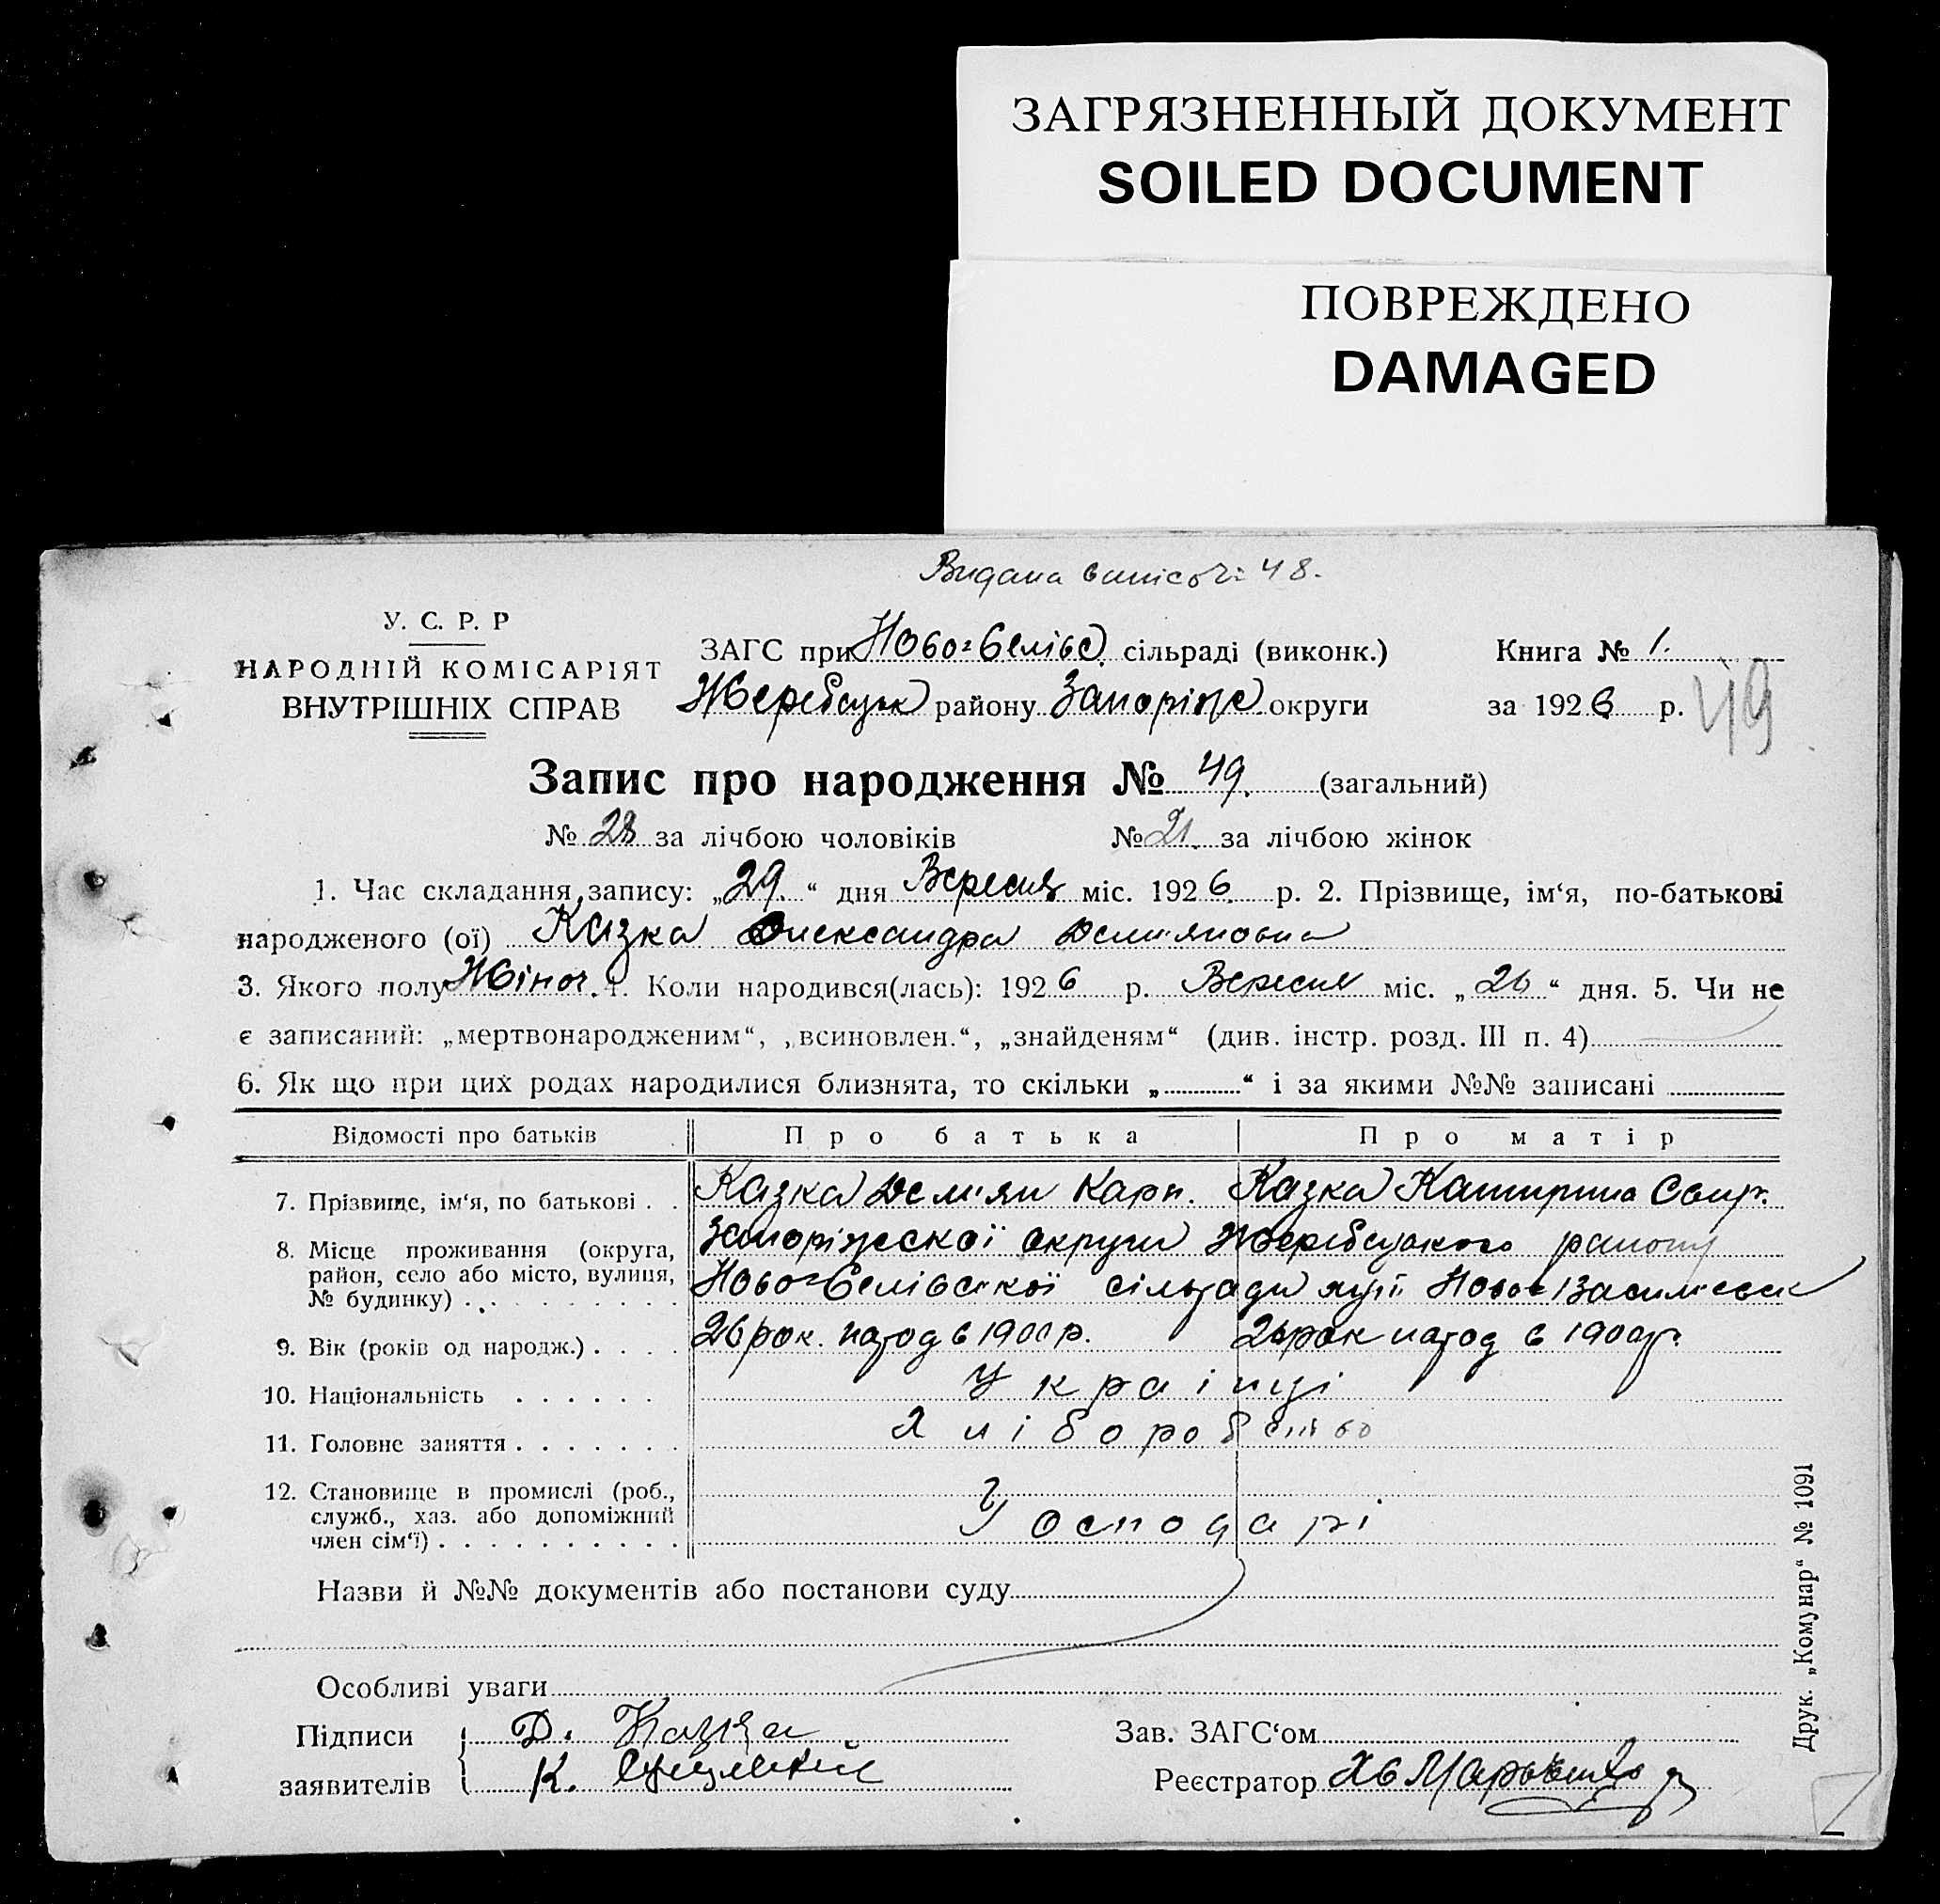 ЗАГРЯЗНЕННЫЙ ДОКУМЕНТ
SOILED DOCUMENT
ПОВРЕЖДЕНО
DAMAGED
Видана 48.
У. С. Р. Р
НАРОДНІЙ КОМІСАРІЯТ
ВНУТРІШНІХ СПРАВ
ЗАГС при Ново-Селівс. сільраді (виконк.)
Жеребецьк району Запоріж. округи
Книга № 1.
за 1926 р.
49
Запис про народження № 49. (загальний)
№ 28 за лічбою чоловіків № 21. за лічбою жінок
1. Час складання запису: „29.“ дня Вересня міс. 1926. р. 2. Прізвище, ім‘я, по-батькові
народженого (ої) Казка Олександра Демяновна
3. Якого полу Жіноч. 4. Коли народився(лась): 1926 р. Вересня міс. „26“ дня. 5. Чи не
є записаний: „мертвонародженим“, „всиновлен.“, „знайденям“ (див. інстр. розд. III п. 4)
6. Як що при цих родах народилися близнята, то скільки „ “ і за якими №№ записані
Відомості про батьків Про батька Про матір
7. Прізвище, ім‘я, по батькові . . Казка Дем'ян Карп. Казка Катирина
8. Місце проживання (округа, район, село або місто, вулиця, № будинку) . . . Запоріжської округи Жеребецького району
Ново-Селівської сільради Ново
9. Вік (років од народж.) . . . . 26 рок. народ в 1900 р. 26 рок народ в 1900 р.
10. Національність . . . . . . Українці
11. Головне заняття . . . . . . . Хліборобство
12. Становище в промислі (роб., служб., хаз. або допоміжний член сім‘ї) . . . . . . . . . . Господарі
Назви й №№ документів або постанови суду
Особливі уваги
Підписи
заявителів
Д. Казка
К.
Зав. ЗАГС‘ом
Реєстратор
Друк. „Комунар“ № 1091